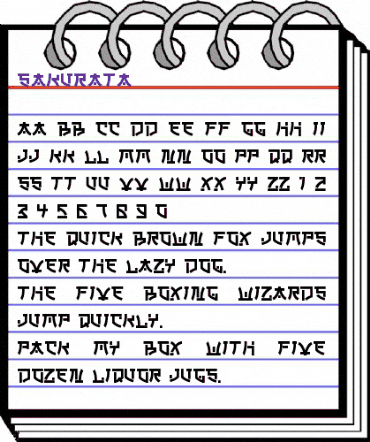 SAKURATA
AA BB CC DD EE FF GG HH II
JJ KK LL MM NN OO PP QQ RR
SS TT UU VV WW XX YY ZZ 1 2
3 4 5 6 7 8 9 0
THE QUICK BROWN FOX JUMPS
OVER THE LAZY DOG.
THE FIVE BOXING WIZARDS
JUMP QUICKLY.
PACK MY BOX WITH FIVE
DOZEN LIQUOR JUGS.